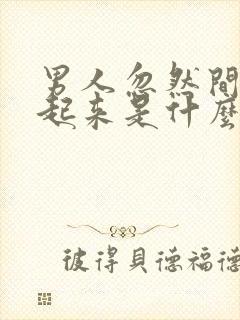 男人忽然間
起來是什麼
彼得貝德福德